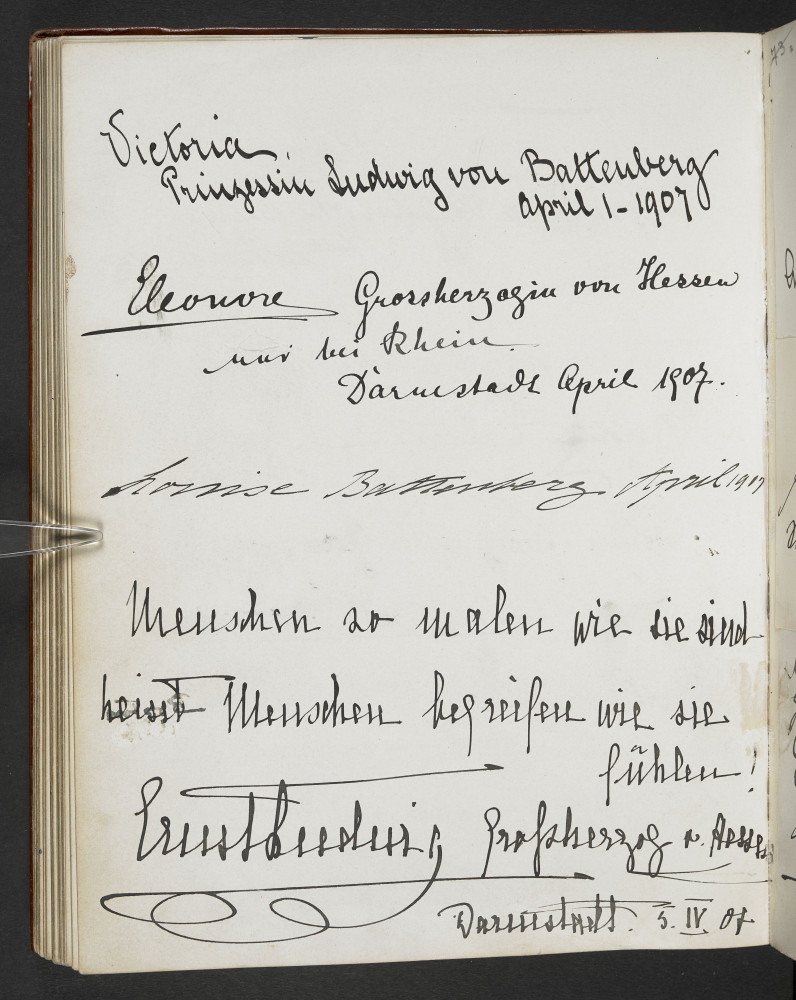 Victoria
Prinzessin Ludwig von Battenberg
April 1 - 1907
Eleonore Grossherzogin von Hessen
und bei Rhein.
Darmstadt April 1907.
Louise Battenberg April 1907
Menschen so malen wie sie sind
heisst Menschen begreifen wie sie
fühlen!
Ernst Ludwig Großherzog v. Hessen
Darmstadt. 5. IV. 07